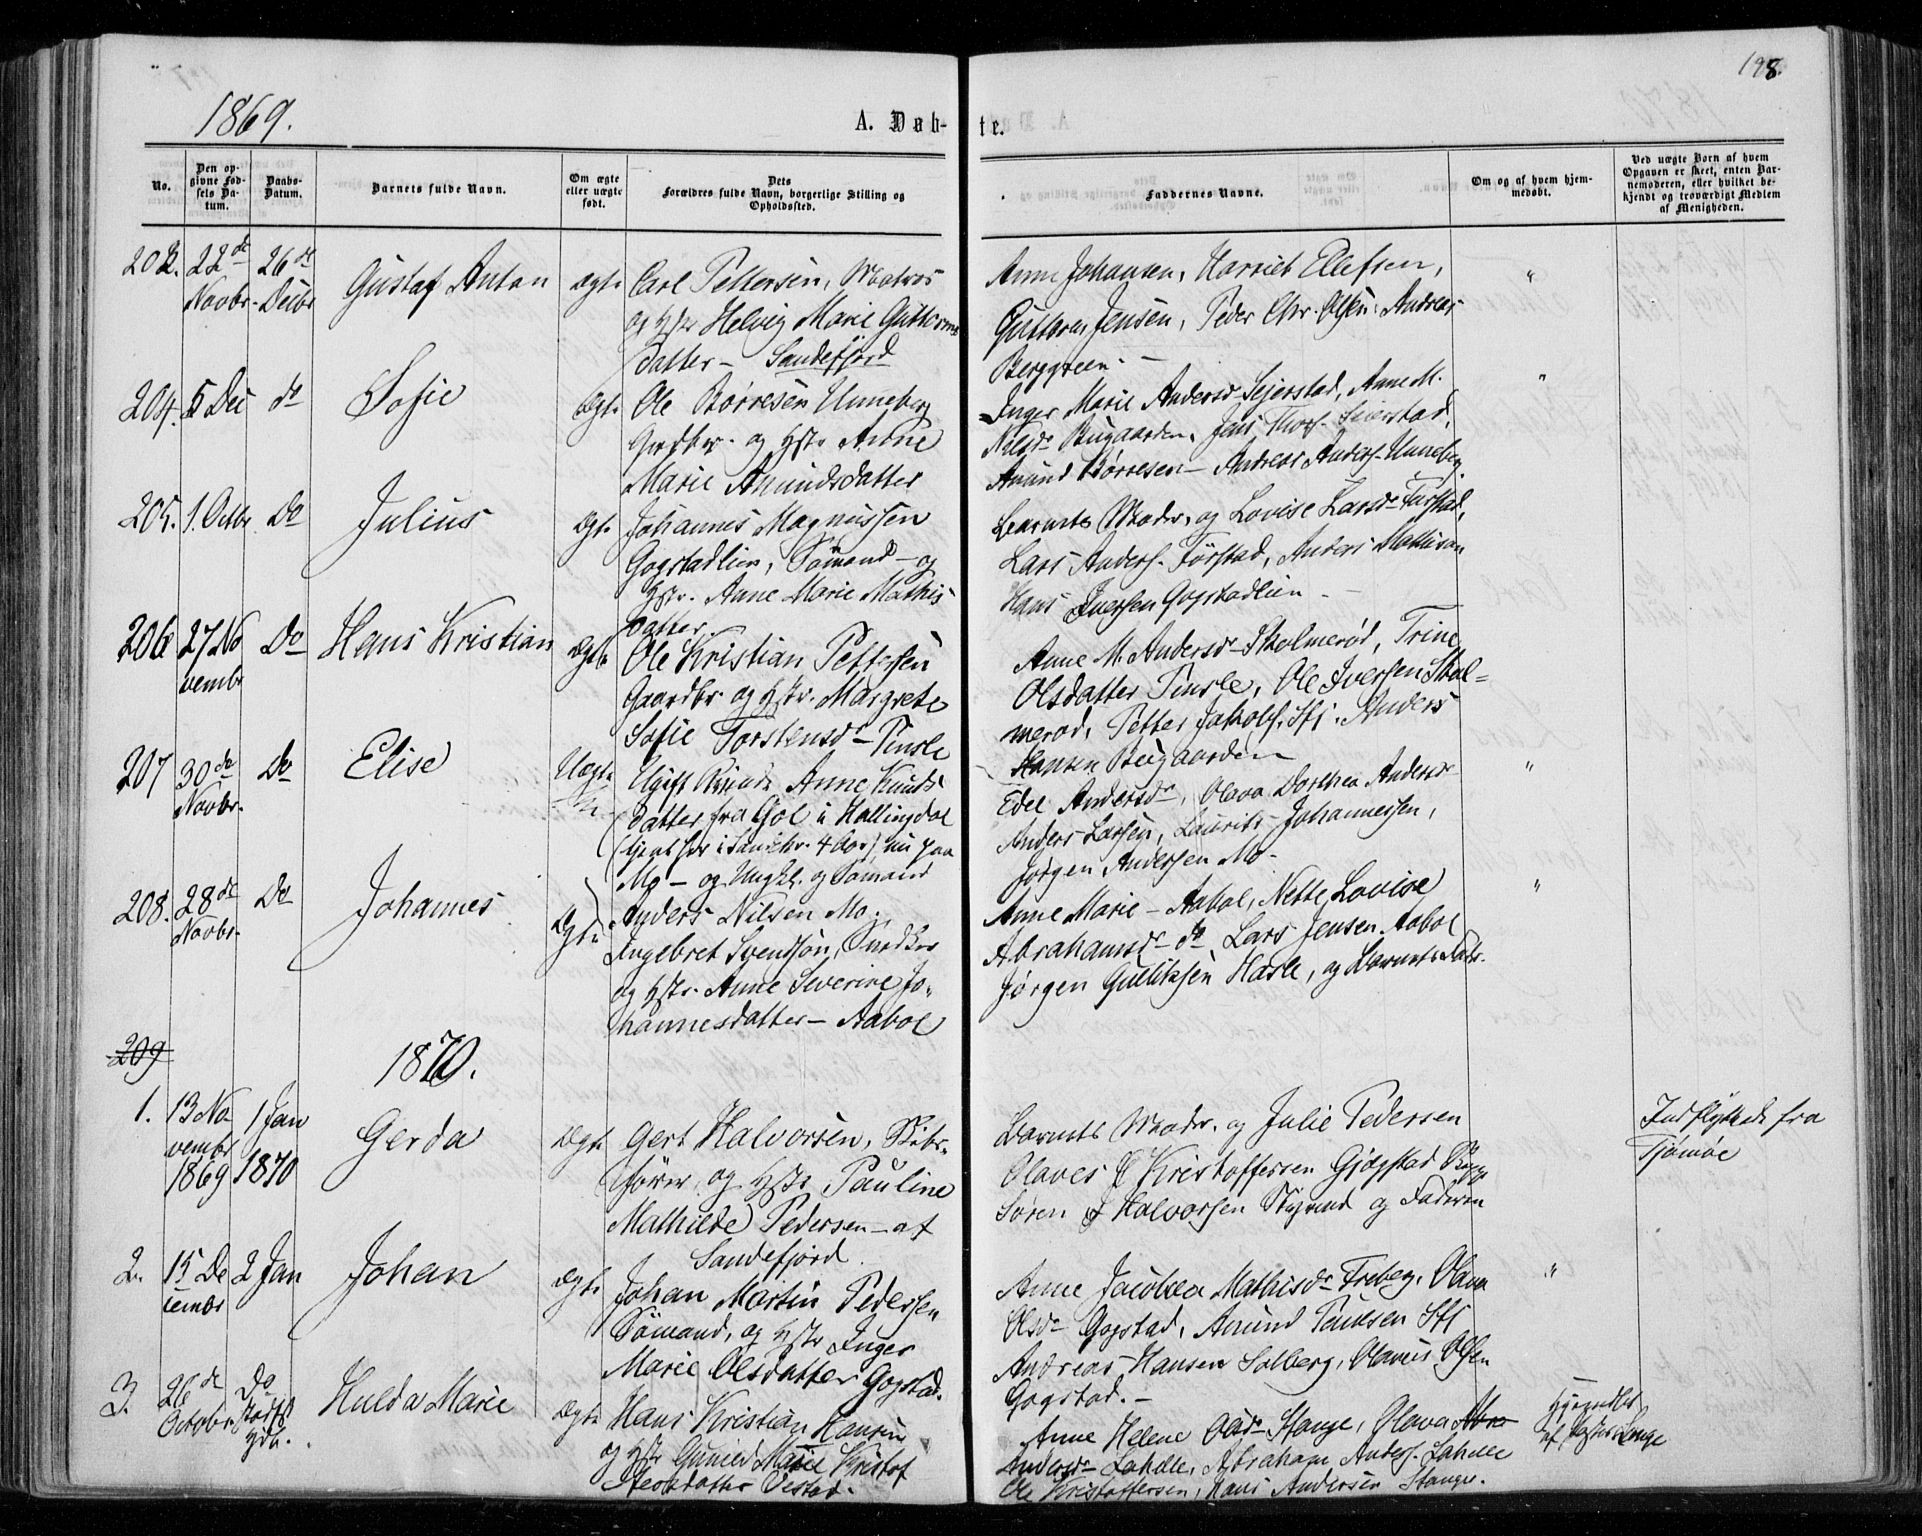 198.
1869.
A. Døb-
te.
No.
Den opgivne Fødsels Datum.
Daabs-Datum.
Barnets fulde Navn.
Om ægte eller uægte født.
Dets Forældres fulde Navn, borgerlige Stilling og Opholdssted.
Faddernes Navne.
Om og af hvem hjemmedøbt.
Ved uægte Børn af hvem Opgaven er skeet, enten Barnemoderen, eller hvilket bekjendt og troværdigt Medlem af Menigheden.
203. 22de Novbr. 26de Decbr Gustaf Anton ægte
Carl Pettersen, Matros
og Hstr Helvig Marie Guttorms
datter - Sandefjord
Anne Johansen, Harriet Ellefsen,
Guttorm Jensen, Peder Chr. Olsen, Andreas
Berggreen. -
204. 5 Dec do Sofie Ægte
Ole Børresen Unneberg
Grdbr. og Hstr Anne
Marie Amundsdatter
Inger Marie Andersdr Sejerstad, Anne M.
Nilsdr Bugaarden, Jens Thors. Seierstad,
Amund Børresen - Andreas Anders. Unneberg
205. 1. Octbr Do Julius Ægte
Johannes Magnussen
Gogstadlien, Sømand - og
Hstr. Anne Marie Mathis
datter
Barnets Moder, og Lovise Larsdr Førstad,
Lars Anders. Førstad, Anders Mathisen
Hans Iversen Gogstadlien -
206 27 No vembr Do Hans Kristian Ægte
Ole Kristian Pettersen
Gaardbr og Hstr. Margrete
Sofie Torstensdr - Pinsle
Anne M. Andersdr Skolmerød, Trine
Olsdatter Pinsle, Ole Iversen Skol=
merød, Petter Jakobs. Sti. Anders
Hansen Bugaarden
207 30de Novbr. Do Elise Uægte
Ugift Anne Knuds
datter fra Gol i Hallingdal
(tjent her i 4 Aar) nu paa
Mo - og Ungkl. og Sømand
Anders Nilsen Mo.
Edel Andersdr, Olava Dorthea Andersdr
Anders Larsen, Laurits Johannessen,
Jørgen Andersen Mo -
208. 28de Novbr. Do Johannes Ægte
Ingebret Svendsøn, Snedker
og Hstr. Anne Severine Jo-
hannesdatter - Aabol
Anne Marie - Aabol, Nette Lovise
Abrahamsdr do Lars Jensen Aabol
Jørgen Gulliksen Hasle, og Barnets Fader.
209
1870.
1. 13 No vembr 1869 1 Jan 1870 Gerda Ægte
Gert Halvorsen, Skibs-
fører, og Hstr Pauline
Mathilde Pedersen - af
Sandefjord
Barnets Moder. og Julie Pedersen
Olaves Kristoffersen Gjøgstad
Søren Halvorsen Styrmd og Faderen
Indflyttede fra
Tjømøe
2. 15 De cembr 2 Jan Johan Ægte
Johan Martin Pedersen
Sømand, og Hstr Inger
Marie Olsdatter Gogstad.
Anne Jacobea Mathisdr Freberg, Olava
Olsdr Gogstad, Amund Paulsen Sti
Andreas Hansen Solberg, Olaus Olsen
Gogstad. -
3. 26de Octobr Do Hulda Marie Ægte
Hans Kristian Hansen
og Hstr Gunild Marie Kristof
fersdatter
Anne Helene Stange, Olava
Andersdr Lahelle, Abraham Anders. Lahelle
Ole Kristoffersen, Hans Andersen Stange.
Hjemdbt
af Lange